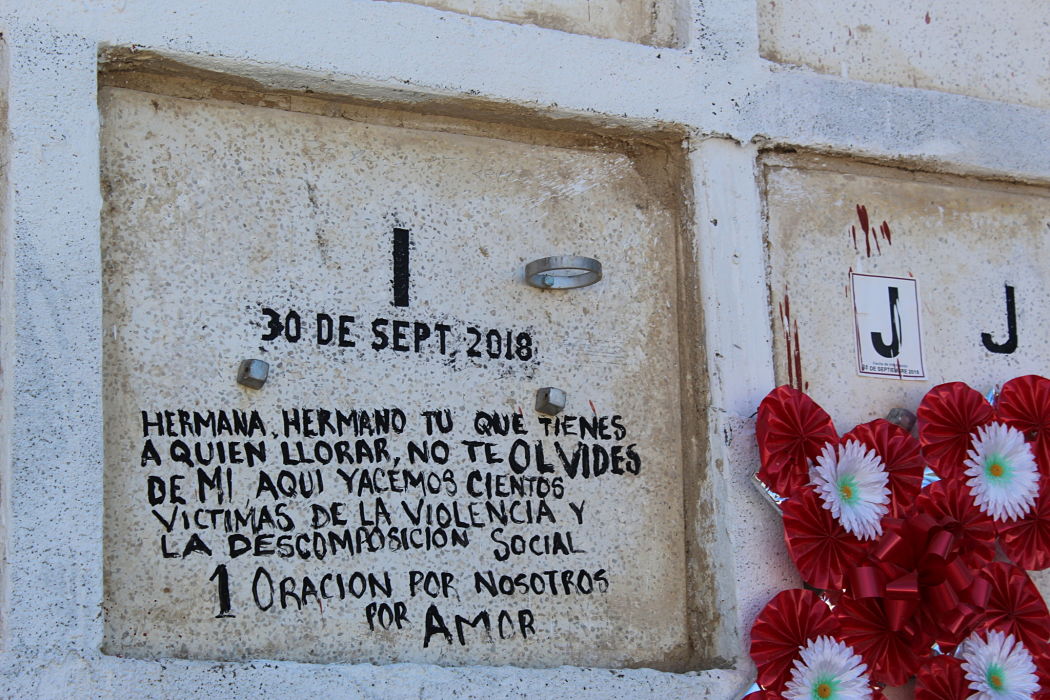 I
30 DE SEPT, 2018
HERMANA, HERMANO TU QUE TIENES
A QUIEN LLORAR, NO TE OLVIDES
DE MI, AQUI YACEMOS CIENTOS
VICTIMAS DE LA VIOLENCIA Y
LA DESCOMPOSICIÓN SOCIAL
1 ORACION POR NOSOTROS
POR AMOR
J
DE SEPTIEMBRE 2018
J